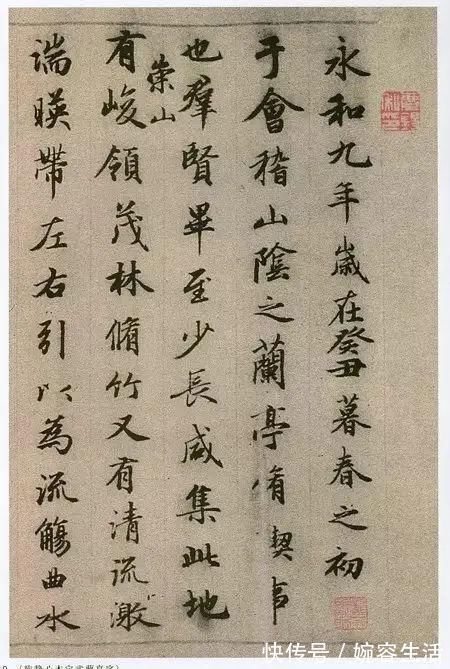 永和九年歲在癸丑暮春之初
于會稽山陰之蘭亭脩禊事
也羣賢畢至少長咸集此地
崇山
有峻領茂林脩竹又有清流激
湍暎帶左右引以為流觴曲水
快传号/婉容生活